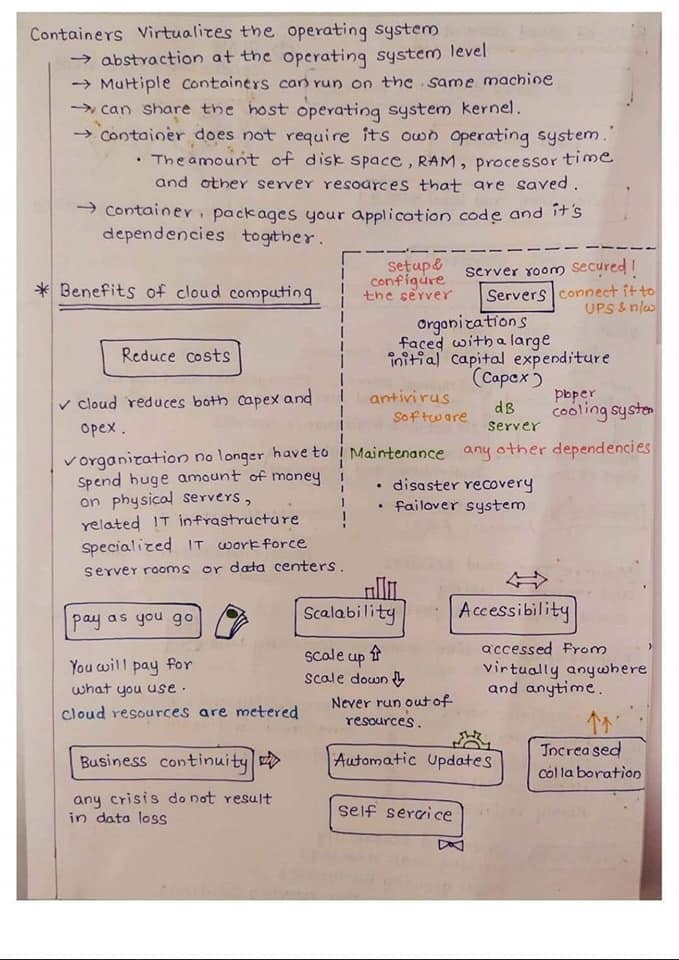 Containers Virtualizes the operating system
→ abstraction at the operating system level
→ Multiple containers can run on the same machine
→ can share the host operating system kernel.
→ container does not require its own operating system.
• The amount of disk space, RAM, processor time
and other server resources that are saved.
→ container, packages your application code and it's
dependencies together.
* Benefits of cloud computing
Reduce costs
✓ cloud reduces both capex and
opex.
✓ organization no longer have to
spend huge amount of money
on physical servers,
related IT infrastructure
specialized IT workforce
server rooms or data centers.
setup &
configure
the server
server room secured!
Servers
connect it to
UPS & n/w
organizations
faced with a large
initial capital expenditure
(Capex)
antivirus
software
dB
server
proper
cooling system
Maintenance any other dependencies
• disaster recovery
• failover system
pay as you go
You will pay for
what you use.
cloud resources are metered
Scalability
scale up ⇧
scale down ⇩
Never run out of
resources.
Accessibility
accessed from
virtually anywhere
and anytime.
Business continuity
any crisis do not result
in data loss
Automatic Updates
Self service
Increased
collaboration